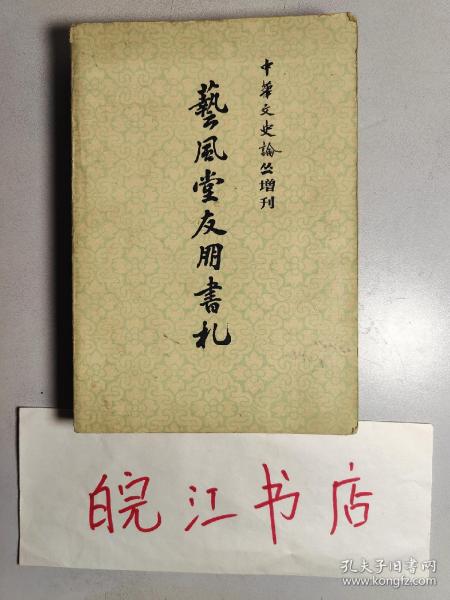 中華文史論丛增刊
藝風堂友朋書札
皖江书店
孔夫子旧书网
www.kongfz.com